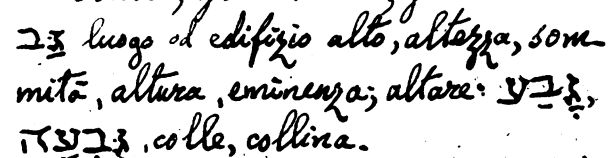 גַּב luogo od edifizio alto, altezza, som-
mità, altura, eminenza; altare: גֶּבַע,
גִּבְעָה, colle, collina.